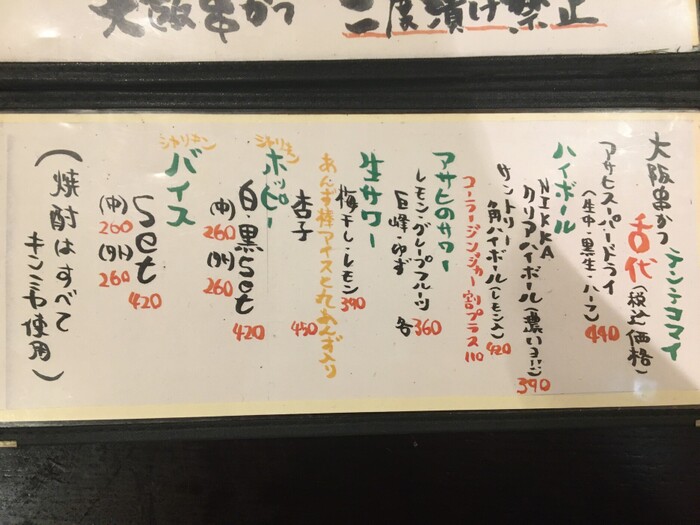 大阪串かつ 二度漬け禁止
大阪串かつ テンテコマイ
舌代(税込価格)
アサヒスーパードライ
(生中・黒生・ハーフ) 440
ハイボール
NIKKA
クリアハイボール(濃いヨー) 390
サントリー
角ハイボール(レモン入) 420
コーラ・ジンジャー割プラス110
アサヒのサワー
レモン・グレープフルーツ
巨峰・ゆず 各360
生サワー
梅干し・レモン 390
あんず棒アイスと丸あんず入り
杏子 450
シャリキン
ホッピー
白・黒set 420
(中) 260 (外) 260
シャリキン
バイス
set 420
(中) 260 (外) 260
(焼酎はすべて
キンミヤ使用)